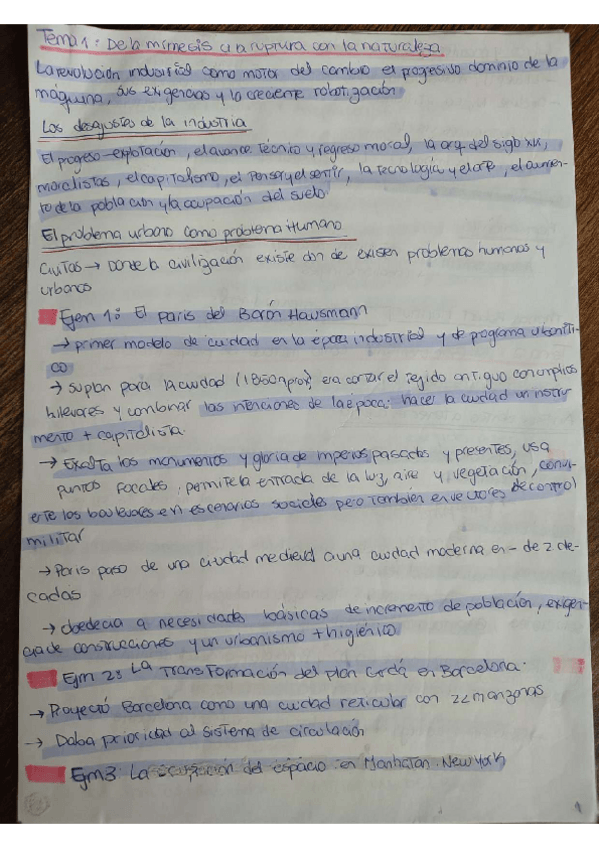 Tema 1: De la mímesis a la ruptura con la naturaleza
La revolución industrial como motor del cambio el progresivo dominio de la
máquina, sus exigencias y la creciente robotización
Los desajustes de la industria
El progeso-explotación, el avance técnico y regreso moral, la arq. del siglo XIX,
moralistas, el capitalismo, el pensar y el sentir, la tecnología y el arte, el aumen-
to de la población y la ocupación del suelo.
El problema urbano como problema Humano
Ciutas → Donde la civilización existe don de existen problemas humanos y
urbanos
Ejem 1: El paris del Barón Hausmann
→ primer modelo de ciudad en la época industrial y de programa urbaníti-
co
→ su plan para la ciudad (1850 aprox) era cortar el tegido antiguo con amplios
bulevares y combinar las intenciones de la época: hacer la ciudad un instru
mento + capitalista.
→ Exalta los monumentos y gloria de imperios pasados y presentes, usa
puntos focales, permite la entrada de la luz, aire y vegetación, convi-
erte los boulevares en escenarios sociales pero también en vectores de control
militar
→ Paris paso de una ciudad medieval a una ciudad moderna en - de 2 de-
cadas
→ obedecia a necesidades básicas de incremento de población, exigen-
cia de construcciones y un urbanismo + higiénico
Ejm 2: La transformación del plan Cerdá en Barcelona.
→ Proyectó Barcelona como una ciudad reticular con 22 manzanas
→ Daba prioridad al sistema de circulación
Ejm 3: La ocupación del espacio en Manhatan. New York
1